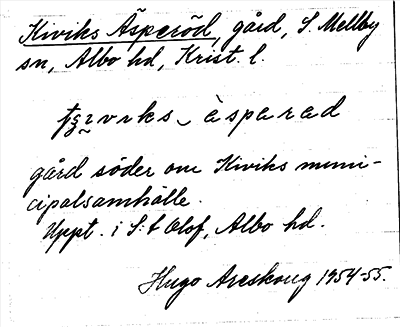 Kiviks Äsperöd, gård, S. Mellby
sn, Albo hd, Krist. l.
gård söder om Kiviks muni-
cipalsamhälle.
Uppt. i S:t Olof, Albo hd.
Hugo Areskoug 1954-55.